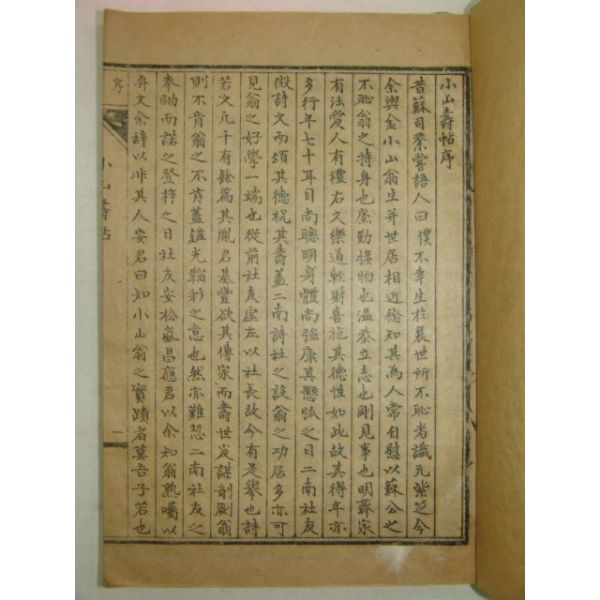 小山壽帖序
昔蘇司業嘗語人曰僕不幸生於衰世所不恥者識元紫芝今
余與金小山翁生并世居相近稔知其為人常自慰以蘇公之
不恥翁之持身也廉勤接物也溫恭立志也剛見事也明齊家
有法愛人有禮右文樂道輕財喜施其德性如此故其得年亦
多行年七十耳目尚聰明身體尚強康其懸弧之日二南社友
徵詩文而頌其德祝其壽蓋二南詩社之設翁之功居多亦可
見翁之好學一端也從前社友崖左以社長故今有是擧也詩
若文凡千有餘篇其胤君基豐欲其傳家而壽世友謀剞劂翁
則不肯翁之不肯蓋鏟光韜彩之意也然亦難恐二南社友之
奉勸而諾之登梓之日社友安松嵐昌應君以余知翁熟囑以
弁文余辞以非其人安君曰知小山翁之實蹟者莫吾子若也
序
小山壽帖
一